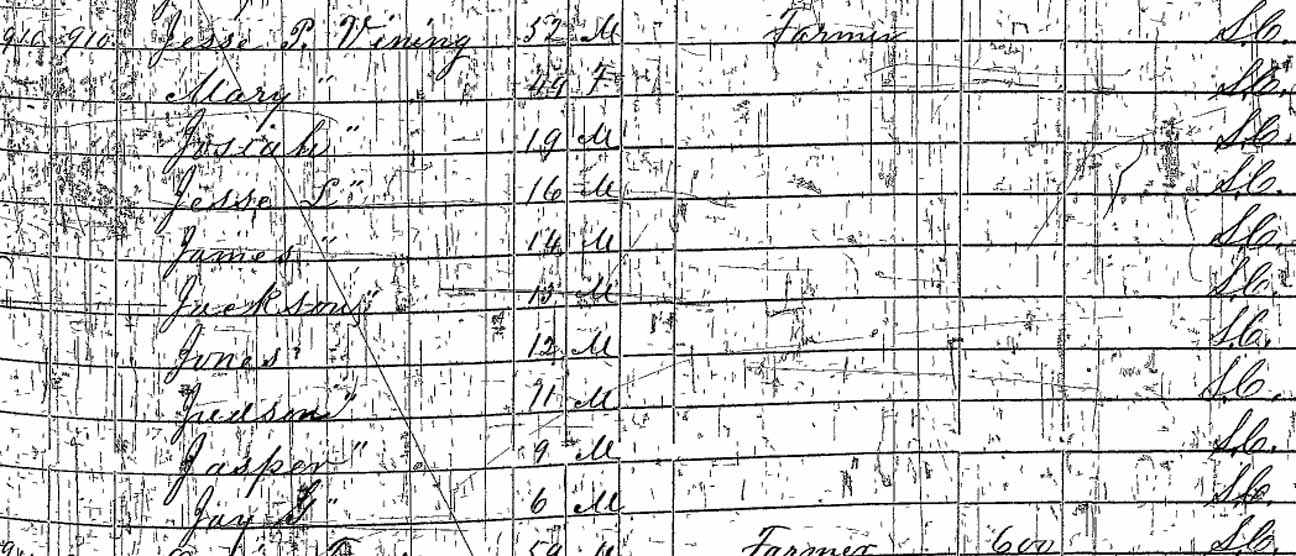 910 910 Jesse P. Vining 52 M Farmer S.C.
Mary " 49 F S.C.
Josiah " 19 M S.C.
Jesse L " 16 M S.C.
James " 14 M S.C.
Jackson " 13 M S.C.
Jones " 12 M S.C.
Judson " 11 M S.C.
Jasper " 9 M S.C.
Jay " 6 M S.C.
59 M Farmer 600 S.C.